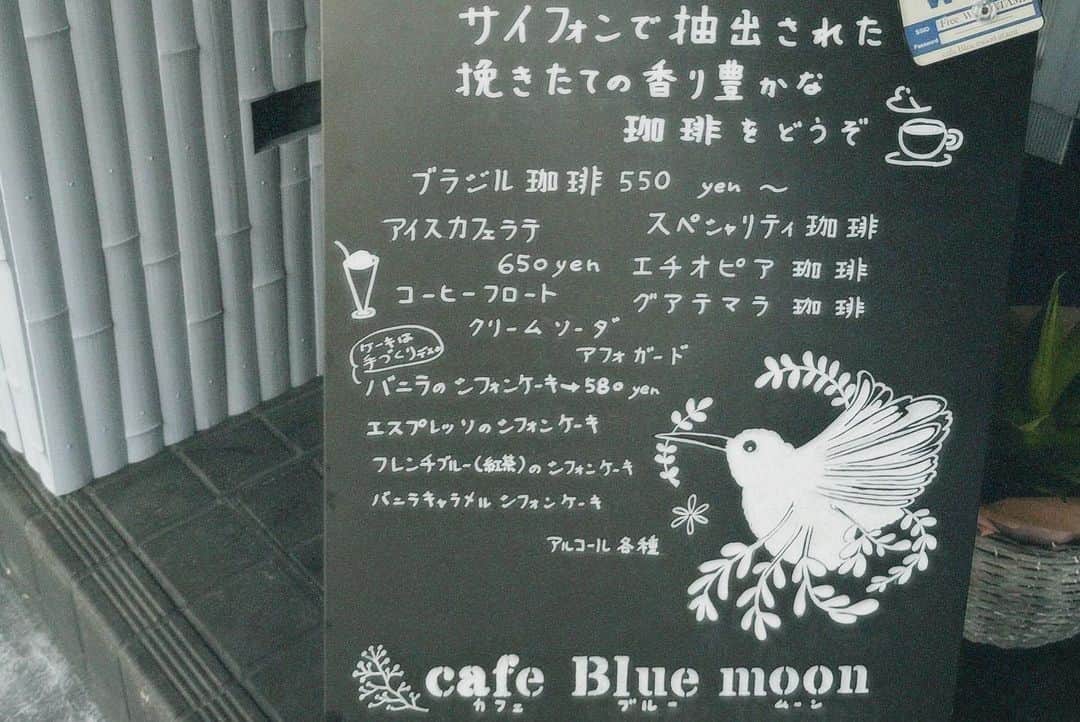 サイフォンで抽出された
挽きたての香り豊かな
珈琲をどうぞ
ブラジル珈琲 550 yen 〜
アイスカフェラテ
650yen
コーヒーフロート
クリームソーダ
アフォガード
スペシャリティ珈琲
エチオピア 珈琲
グアテマラ 珈琲
ケーキは
手づくりデス。
バニラのシフォンケーキ→580yen
エスプレッソのシフォンケーキ
フレンチブルー(紅茶)のシフォンケーキ
バニラキャラメルシフォンケーキ
アルコール各種
cafe Blue moon
カフェ ブルー ムーン
SSID
Free
Password